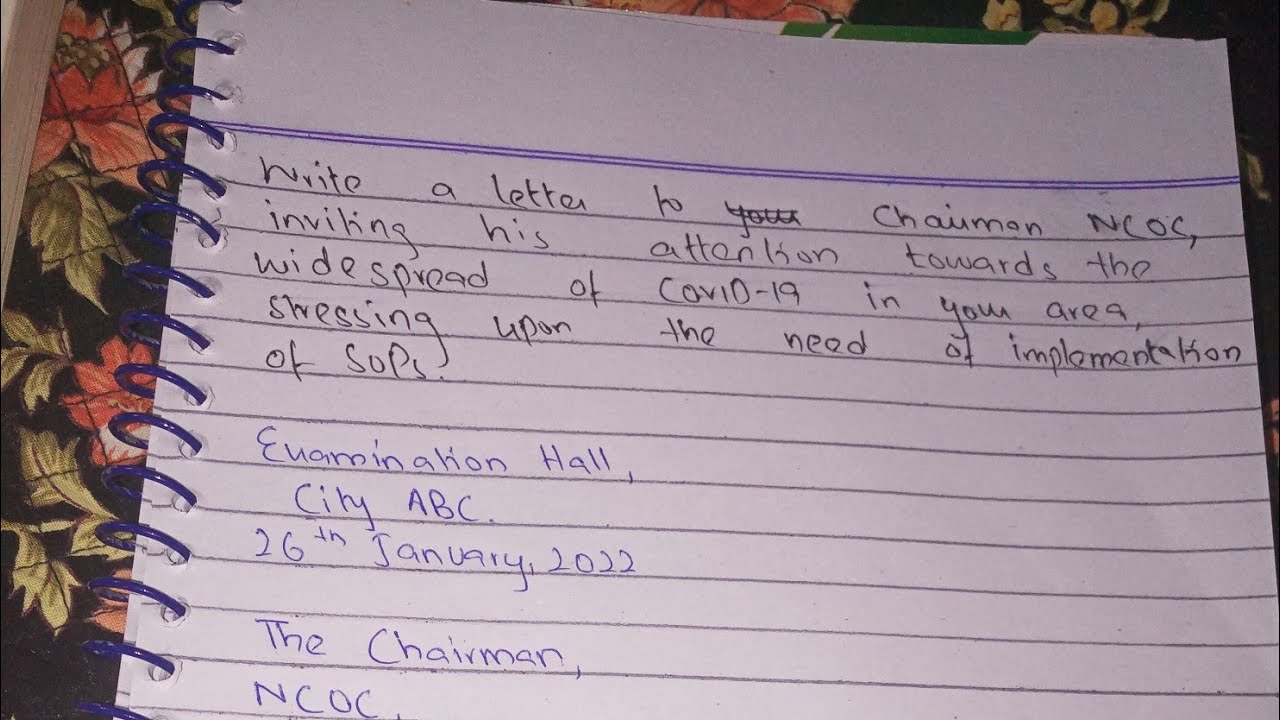 Write a letter to your Chairman NCOC,
inviting his attention towards the
widespread of COVID-19 in your area,
stressing upon the need of implementation
of SOPs.
Examination Hall,
City ABC.
26th January, 2022
The Chairman,
NCOC,